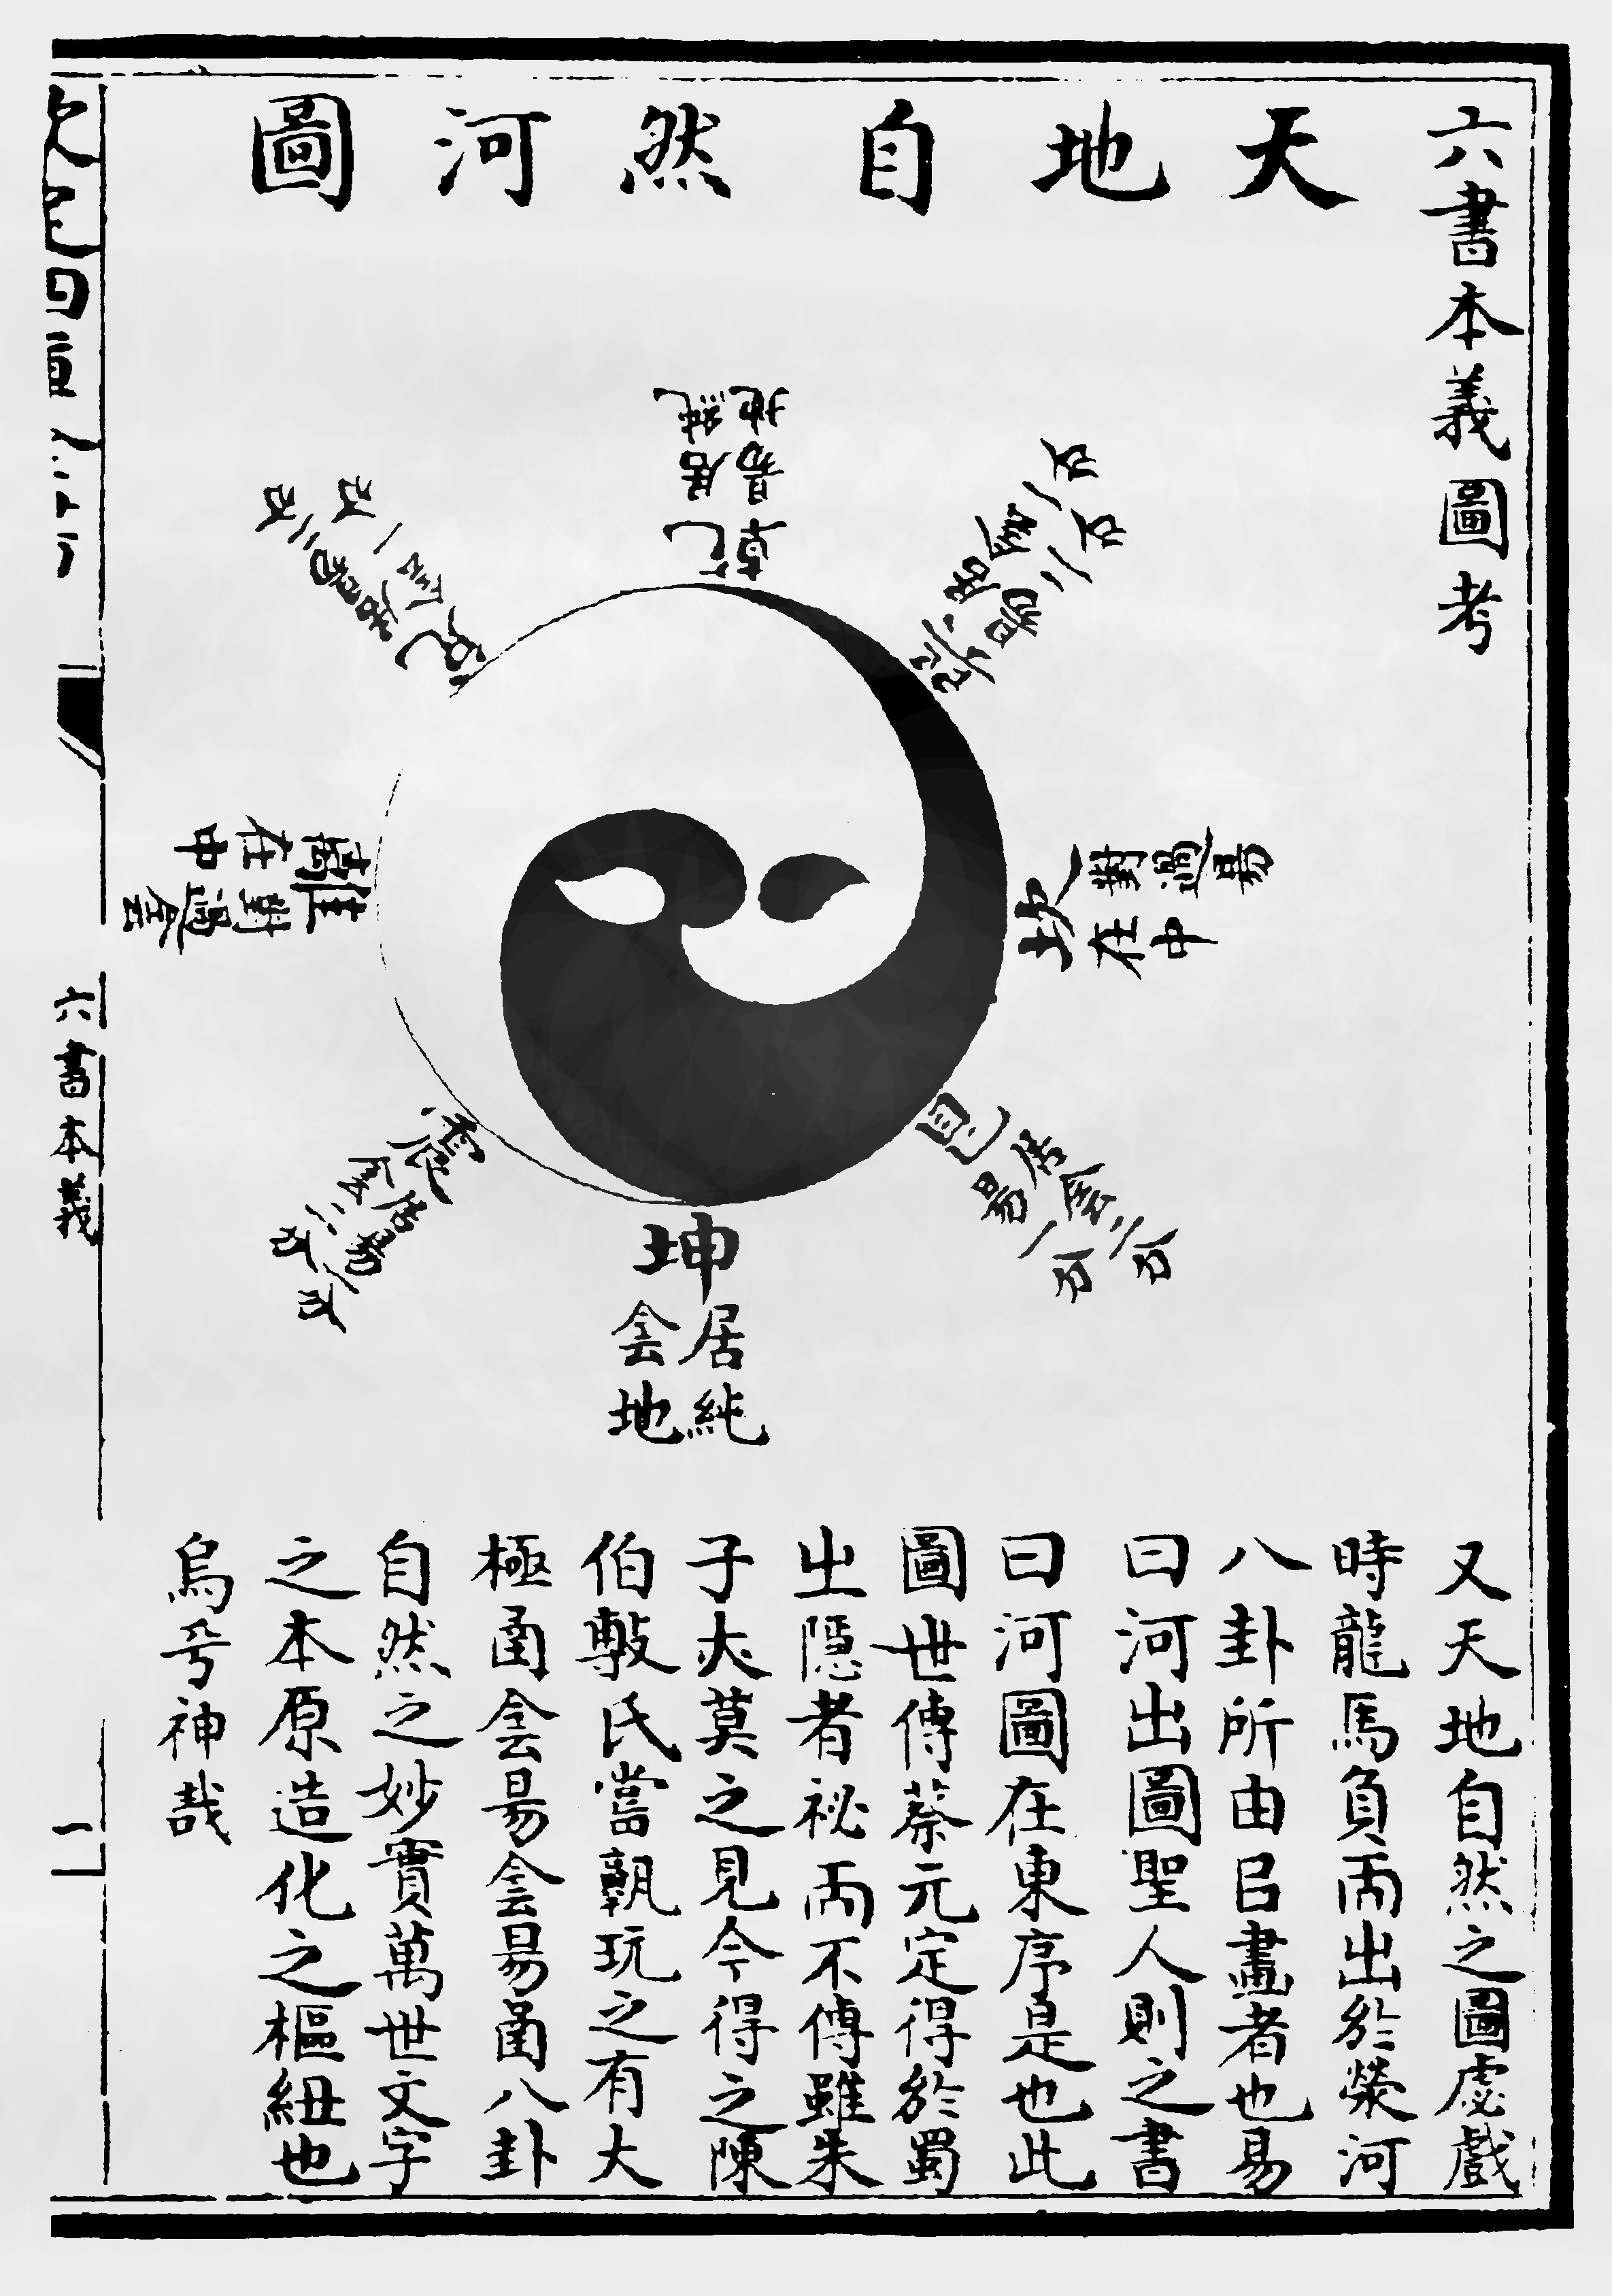 六書本義圖考
天地自然河圖
乾
居純
昜地
巽
居侌一分
昜二分
坎
對過昜
在中
艮
居侌二分
昜一分
坤
居純
侌地
震
居昜一分
侌二分
離
對過侌
在中
兌
居昜二分
侌一分
又天地自然之圖虙戲
時龍馬負而出於滎河
八卦所由㠯畫者也易
曰河出圖聖人則之書
曰河圖在東序是也此
圖世傳蔡元定得於蜀
㞢隱者祕而不傳雖朱
子亦莫之見今得之陳
伯敷氏嘗孰玩之有大
極圅侌昜侌昜圅八卦
自然之妙實萬世文字
之本原造化之樞紐也
烏兮神哉
六書本義